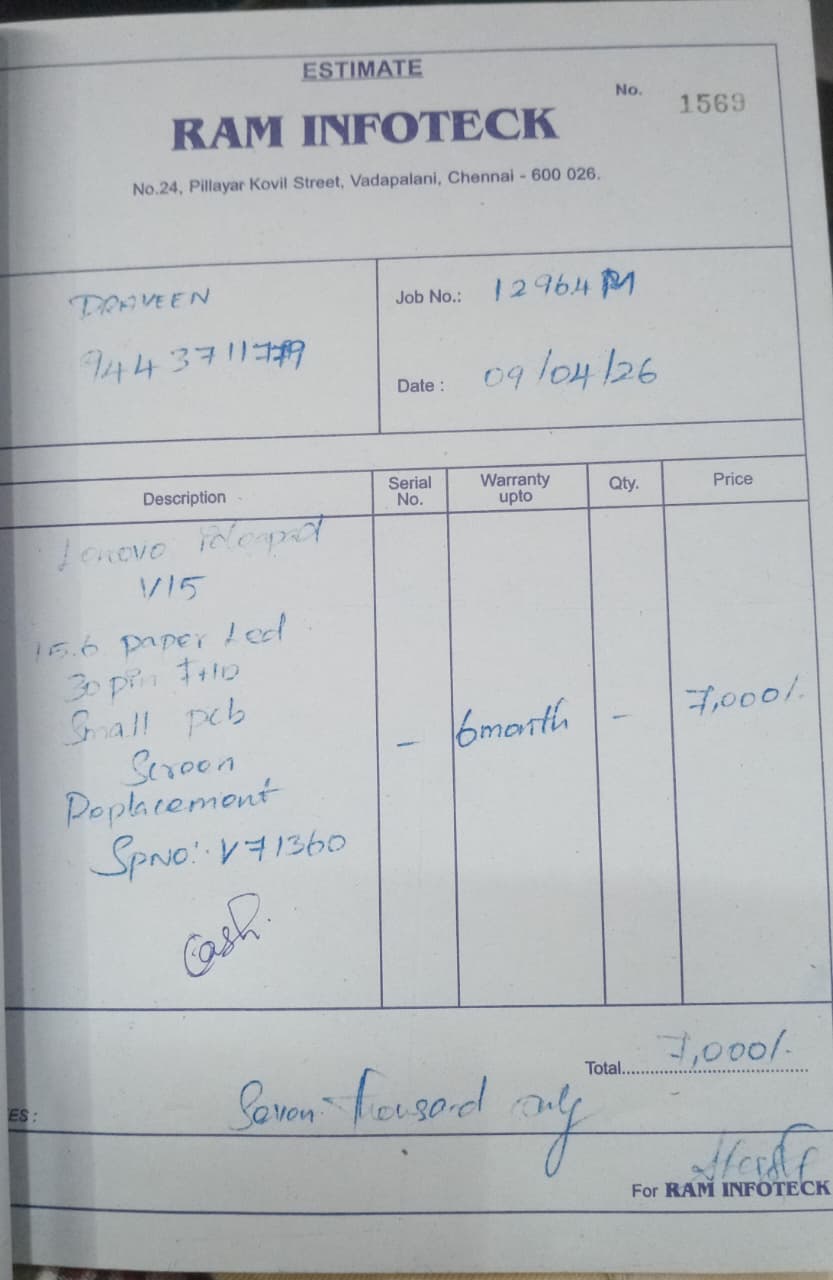 ESTIMATE
No. 1569
RAM INFOTECK
No.24, Pillayar Kovil Street, Vadapalani, Chennai - 600 026.
PRAVEEN
Job No.: 12964
Date : 09/04/26
Description Serial No. Warranty upto Qty. Price
Lenovo Ideapad
V15
15.6 paper Led
30 pin FHD
Small pcb
Screen
Replacement
SPNO: V71360
- 6month - 7,000/.
Cash.
Total 7,000/.
ES : Seven Thousand only
For RAM INFOTECK